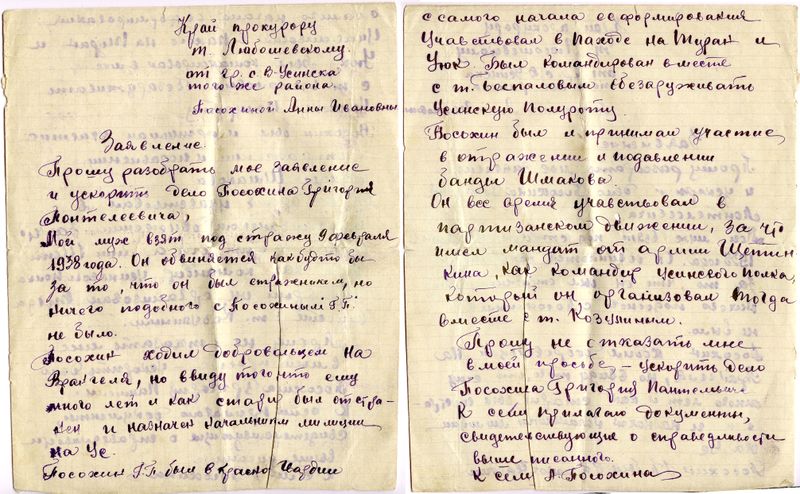 Край прокурору
т. Любошевскому.
от гр. с В-Усинска
того же района.
Посохиной Анны Ивановны
Заявление.
Прошу разобрать мое заявление
и ускорить дело Посохина Григория
Понтелеевича,
Мой муж взят под стражу 9 февраля
1938 года. Он обвиняется как будто бы
за то, что он был стражником, но
ничего подобного с Посохиным Г.П.
не было.
Посохин ходил добровольцем на
Врангеля, но ввиду того что ему
много лет и как старик был отстра-
нен и назначен начальником милиции
на Ус.
Посохин Г.П. был в красно гвардии
с самого начала ее формирования
Участвовал в походе на Туран и
Уюк. Был командирован вместе
с т. Беспаловым обезаруживать
Усинскую Полуроту.
Посохин был и принимал участие
в отражении и подавлении
банды Шмакова.
Он все время участвовал в
партизанском движении, за что
имел мандат от армии Щетин
кина, как командир Усинского полка,
который он организовал тогда
вместе с т. Козулиным.
Прошу не отказать мне
в моей просьбе – ускорить дело
Посохина Григория Пантельевич
К сему прилагаю документы,
свидетельствующие о справедливости
выше писанного.
К сем А. Посохина